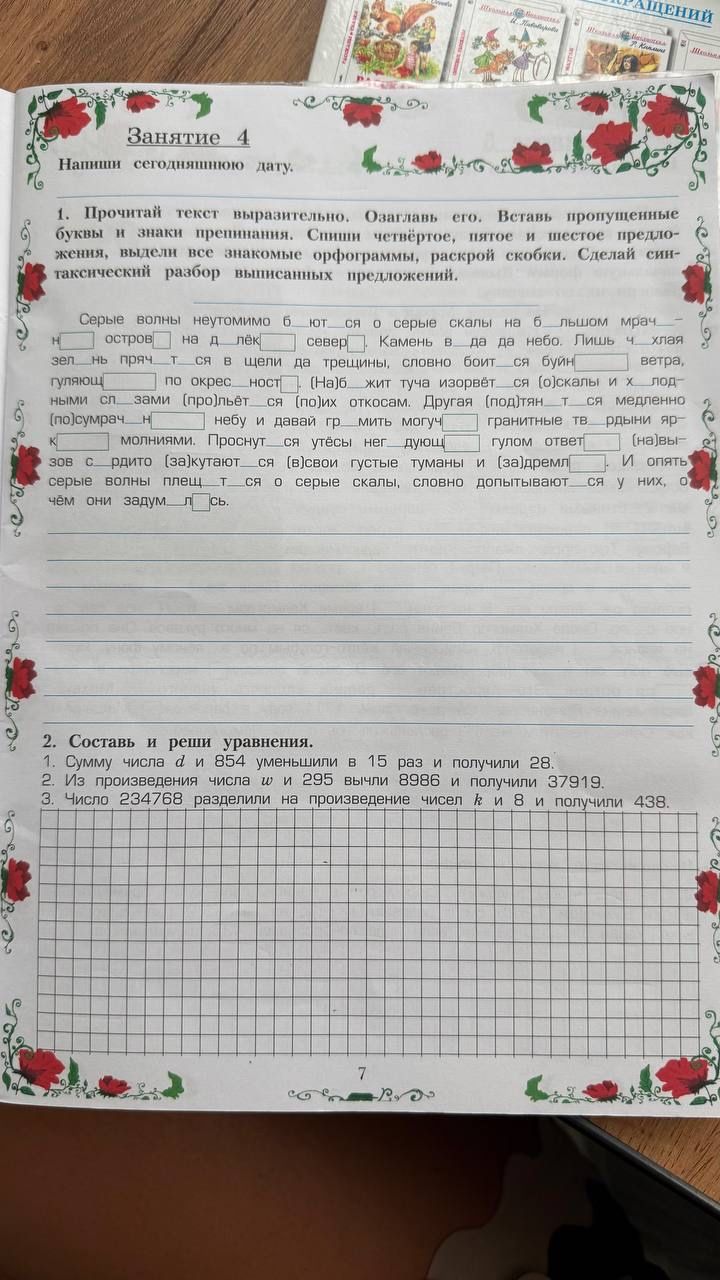 КРАЩЕНИЙ
Школьная Библиотека
И. Пивоварова
Школьная Библиотека
Занятие 4
Напиши сегодняшнюю дату.
1. Прочитай текст выразительно. Озаглавь его. Вставь пропущенные
буквы и знаки препинания. Спиши четвёртое, пятое и шестое предло-
жения, выдели все знакомые орфограммы, раскрой скобки. Сделай син-
таксический разбор выписанных предложений.
Серые волны неутомимо б__ют__ся о серые скалы на б__льшом мрач__-
н□ остров□ на д__лёк□ север□. Камень в__да да небо. Лишь ч__хлая
зел__нь пряч__т__ся в щели да трещины, словно боит__ся буйн□ ветра,
гуляющ□ по окрес__ност□. (На)б__жит туча изорвёт__ся (о)скалы и х__лод-
ными сл__зами (про)льёт__ся (по)их откосам. Другая (под)тян__т__ся медленно
(по)сумрач__н□ небу и давай гр__мить могуч□ гранитные тв__рдыни яр-
к□ молниями. Проснут__ся утёсы нег__дующ□ гулом ответ□ (на)вы-
зов с__рдито (за)кутают__ся (в)свои густые туманы и (за)дремл□. И опять
серые волны плещ__т__ся о серые скалы, словно допытывают__ся у них, о
чём они задум__л□сь.
2. Составь и реши уравнения.
1. Сумму числа d и 854 уменьшили в 15 раз и получили 28.
2. Из произведения числа w и 295 вычли 8986 и получили 37919.
3. Число 234768 разделили на произведение чисел k и 8 и получили 438.
7